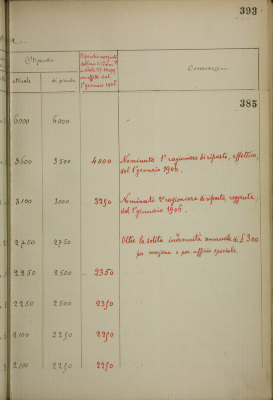 393
Stipendio
attuale
di pianta
Stipendio assegnato
in effetti dal
1° gennaio 1906
Osservazioni
385
6000 6000
3600 3500 4000 Nominato 1° ragioniere di riparto, effettivo,
dal 1° gennaio 1906.
3100 3000 3250 Nominato 2° ragioniere di riparto, reggente,
dal 1° gennaio 1906.
2750 2750 Oltre la solita indennità annuale di £ 300
per mazione e per ufficio speciale.
2250 2500 2350
2250 2500 2350
2100 2250 2250
2100 2250 2250